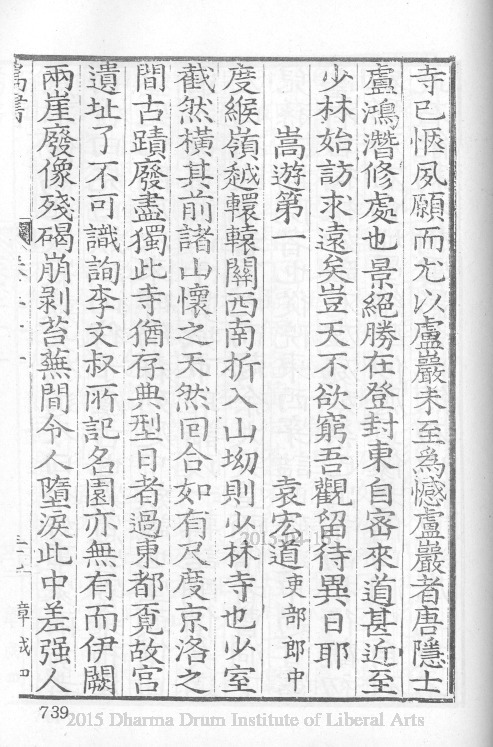 寺已愜夙願而尤以盧巖未至為憾盧巖者唐隱士
盧鴻潛修處也景絕勝在登封東自密來道甚近至
少林始訪求遠矣豈天不欲窮吾觀留待異日耶
嵩遊第一 袁宏道吏部郎中
度緱嶺越轘轅關西南折入山坳則少林寺也少室
截然橫其前諸山懷之天然回合如有尺度京洛之
間古蹟廢盡獨此寺猶存典型日者過東都覓故宮
遺址了不可識詢李文叔所記名園亦無有而伊闕
兩崖廢像殘碣崩剝苔蕪間令人墮淚此中差强人
嵩書
739
2015 Dharma Drum Institute of Liberal Arts